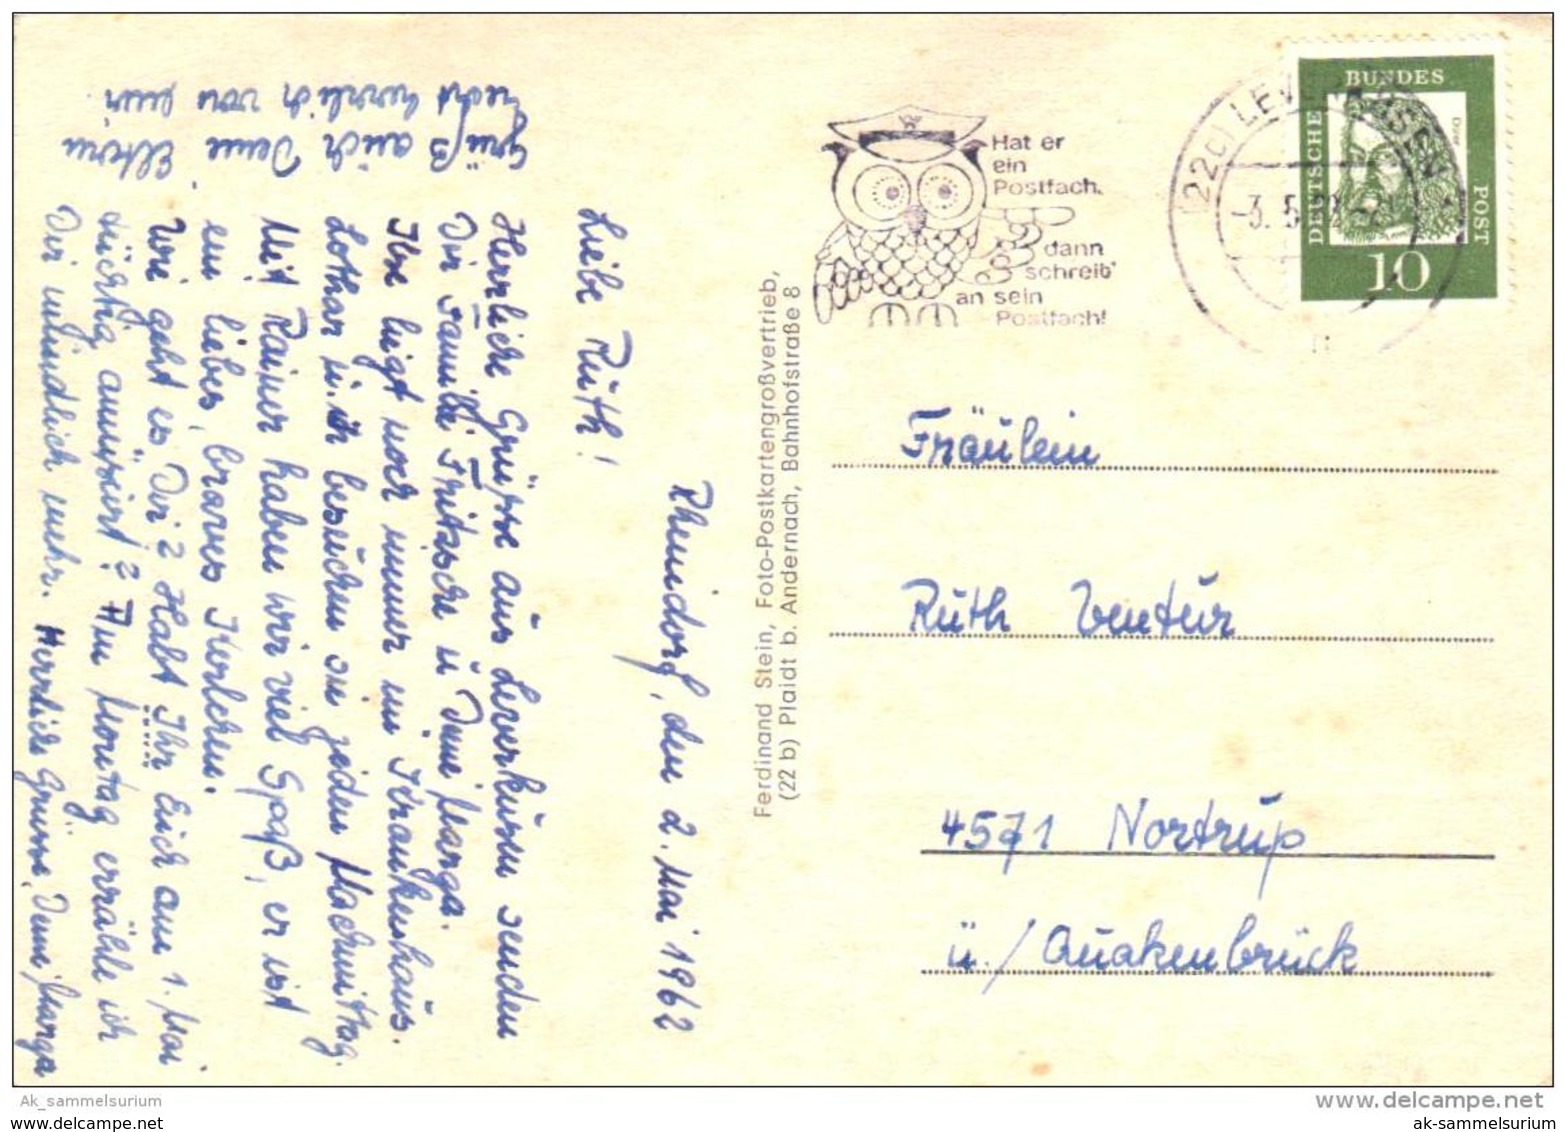 Rheindorf, den 2. Mai 1962
Liebe Ruth!
Herrliche Grüsse aus Leverkusen senden
Dir Familie Fritzsche u Deine Marga.
Ihre liegt noch immer im Krankenhaus.
Lothar u. ich besuchen sie jeden Nachmittag.
Mit Rainer haben wir viel Spaß, er ist
ein liebes, braves Kerlchen.
Wie geht es Dir? Habt Ihr Euch am 1. Mai
tüchtig amüsiert? Am Montag erzähle ich
Dir mündlich mehr. Herzliche Grüsse, Deine Marga
Grüß auch Deine Eltern
recht herzlich von mir.
Ferdinand Stein, Foto-Postkartengroßvertrieb,
(22 b) Plaidt b. Andernach, Bahnhofstraße 8
Hat er
ein
Postfach,
dann
schreib'
an sein
Postfach!
(22c) LEVERKUSEN
-3. 5. 62
DEUTSCHE
BUNDES
POST
Dürer
10
Fräulein
Ruth Ventur
4571 Nortrup
ü./Quakenbrück
Ak_sammelsurium
www.delcampe.net
www.ak-sammelsurium.de
ak-sammelsurium